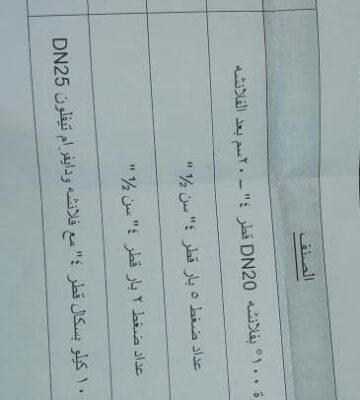 الصنف
ة ١٠٠° بفلانشه DN20 قطر ٤" – ٢٠سم بعد الفلانشه
عداد ضغط ٥ بار قطر ٤" سن ½ "
عداد ضغط ٢ بار قطر ٤" سن ½ "
١٠ كيلو بسكال قطر ٤" مع فلانشه ودايفرام تيفلون DN25